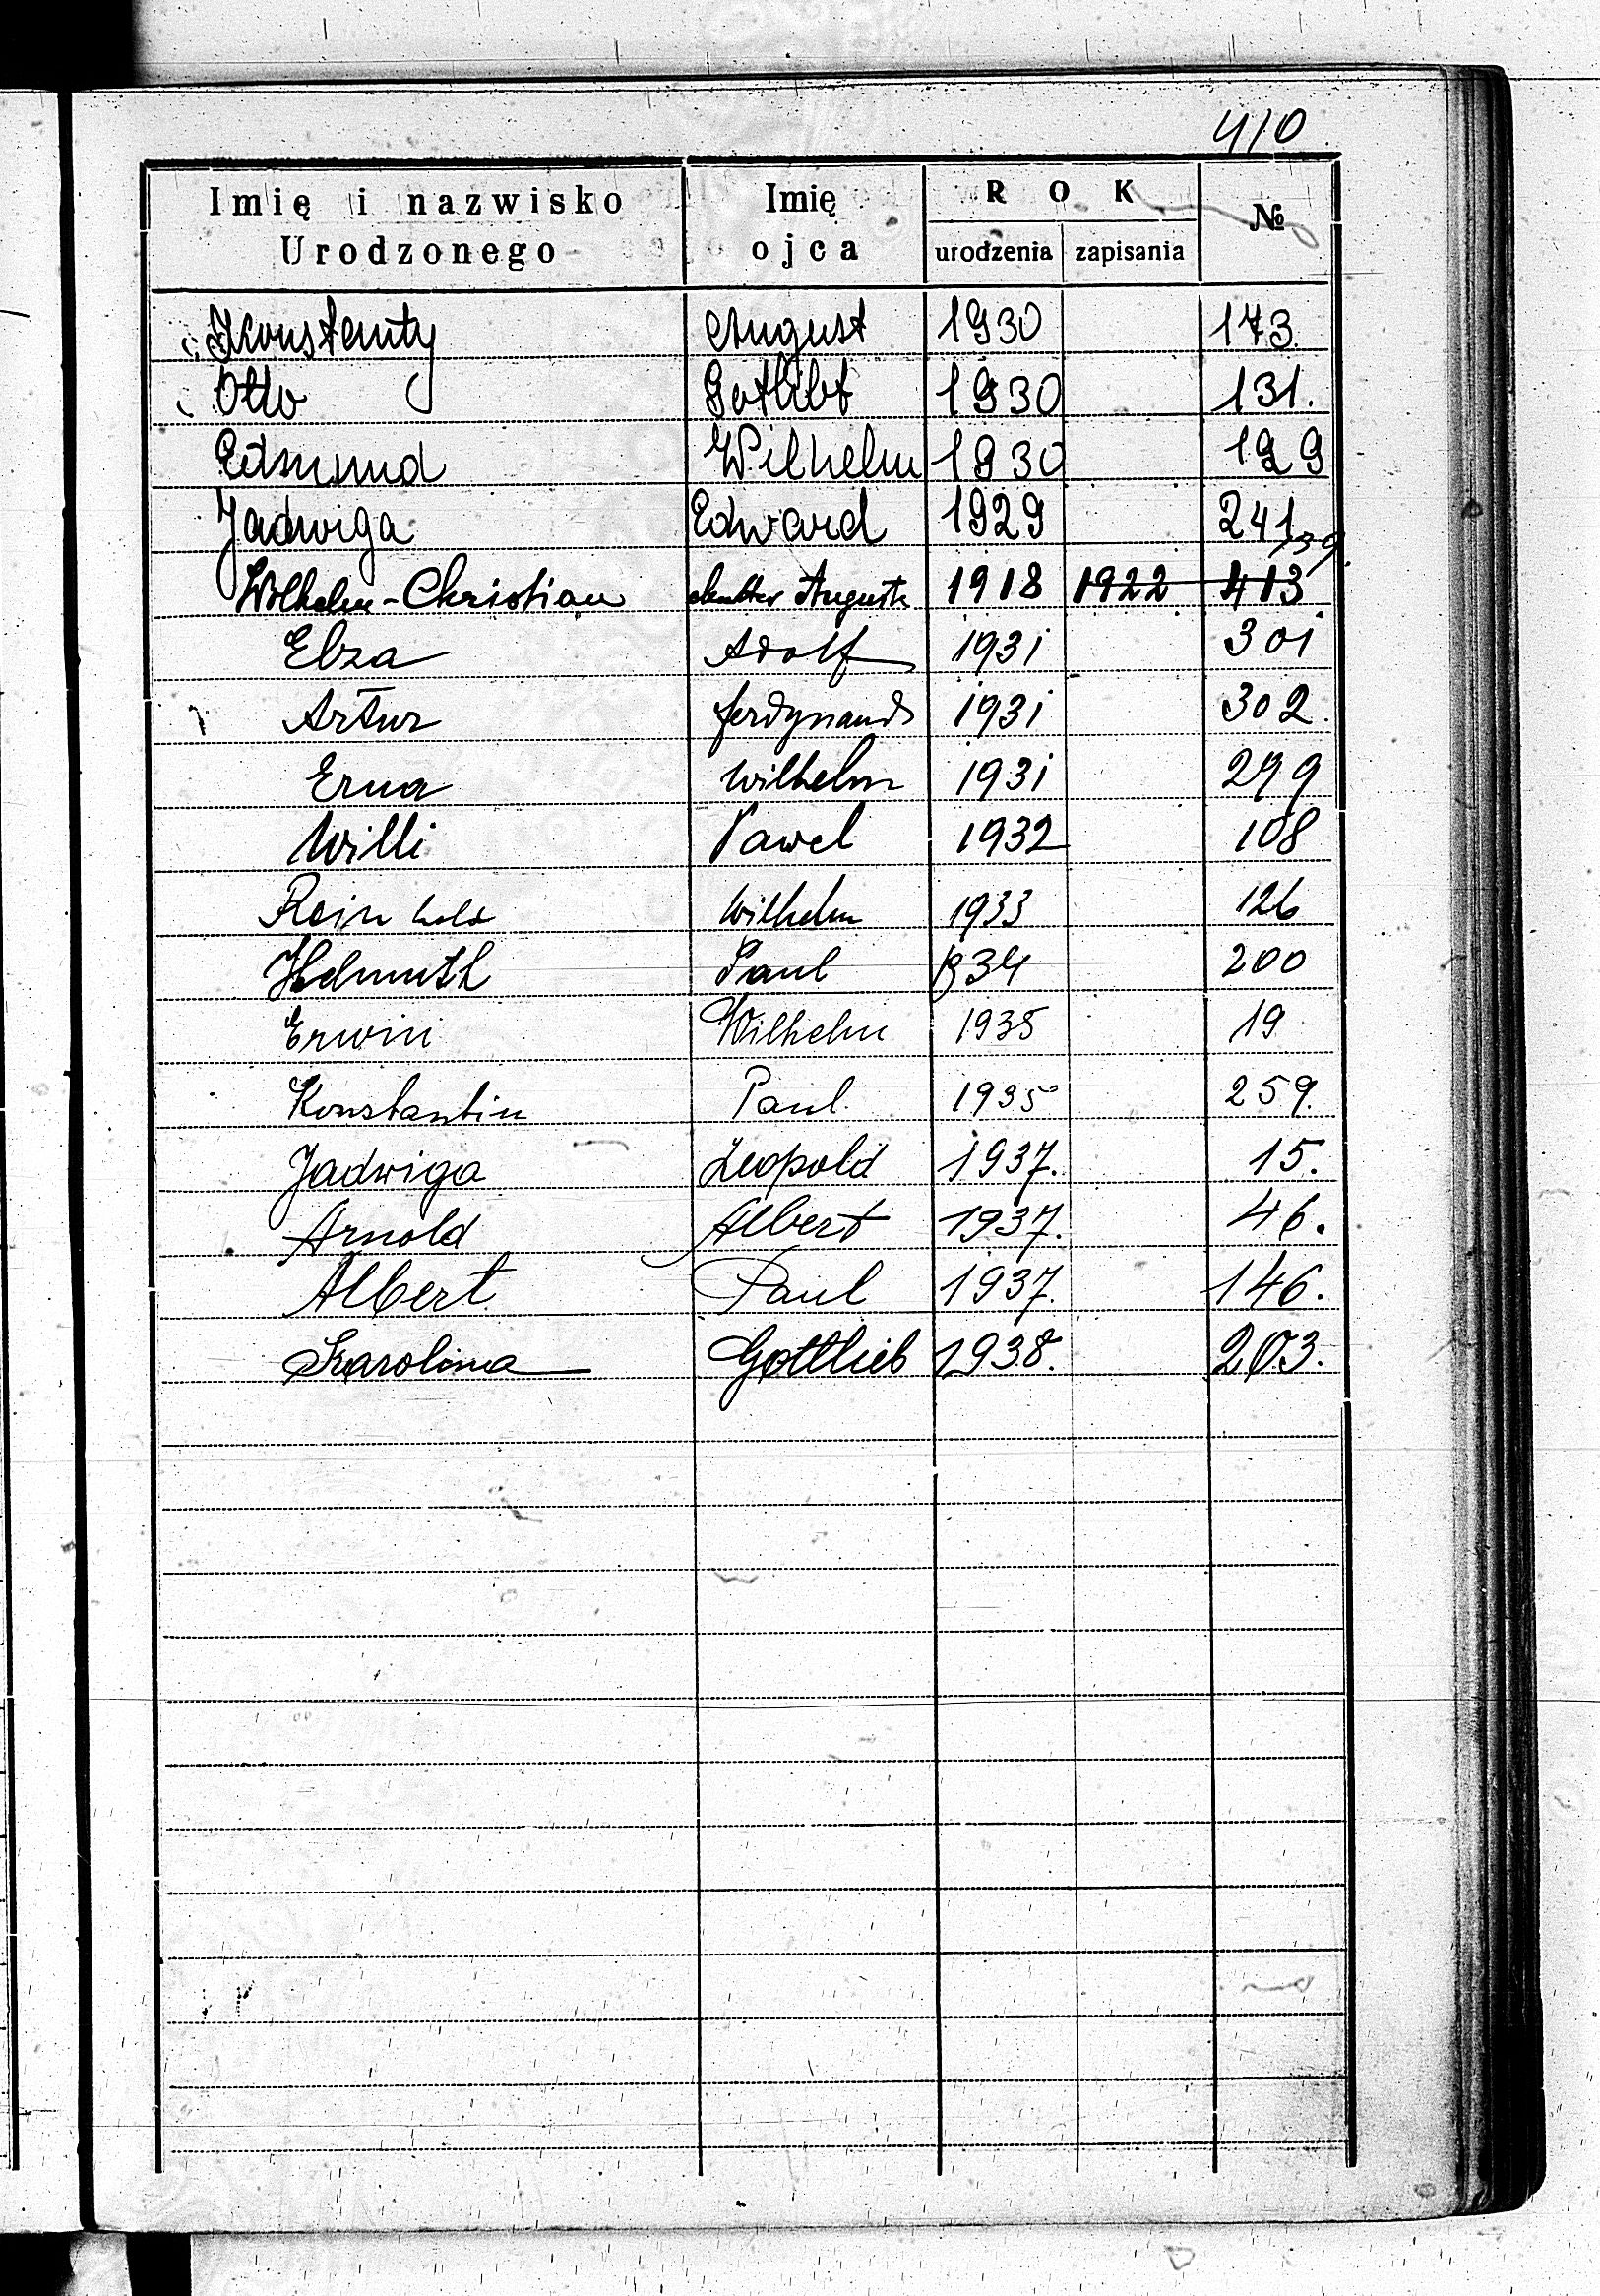 410
Imię i nazwisko Urodzonego Imię ojca ROK urodzenia zapisania №
Konstenty August 1930 173.
Otto Gotlibt 1930 131.
Edmund Wilhelm 1930 129
Jadwiga Edward 1929 241
139.
Wilhelm-Christian Mutter Auguste 1918 1922 413.
Elza Adolf 1931 301
Artur Ferdynand 1931 302.
Erna Wilhelm 1931 299
Willi Pawel 1932 108
Reinhold Wilhelm 1933 126
Helmuth Paul 1934 200
Erwin Wilhelm 1935 19
Konstantin Paul. 1935 259.
Jadwiga Leopold 1937. 15.
Arnold Albert 1937. 46.
Albert Paul 1937. 146.
Karolina Gottlieb 1938. 203.